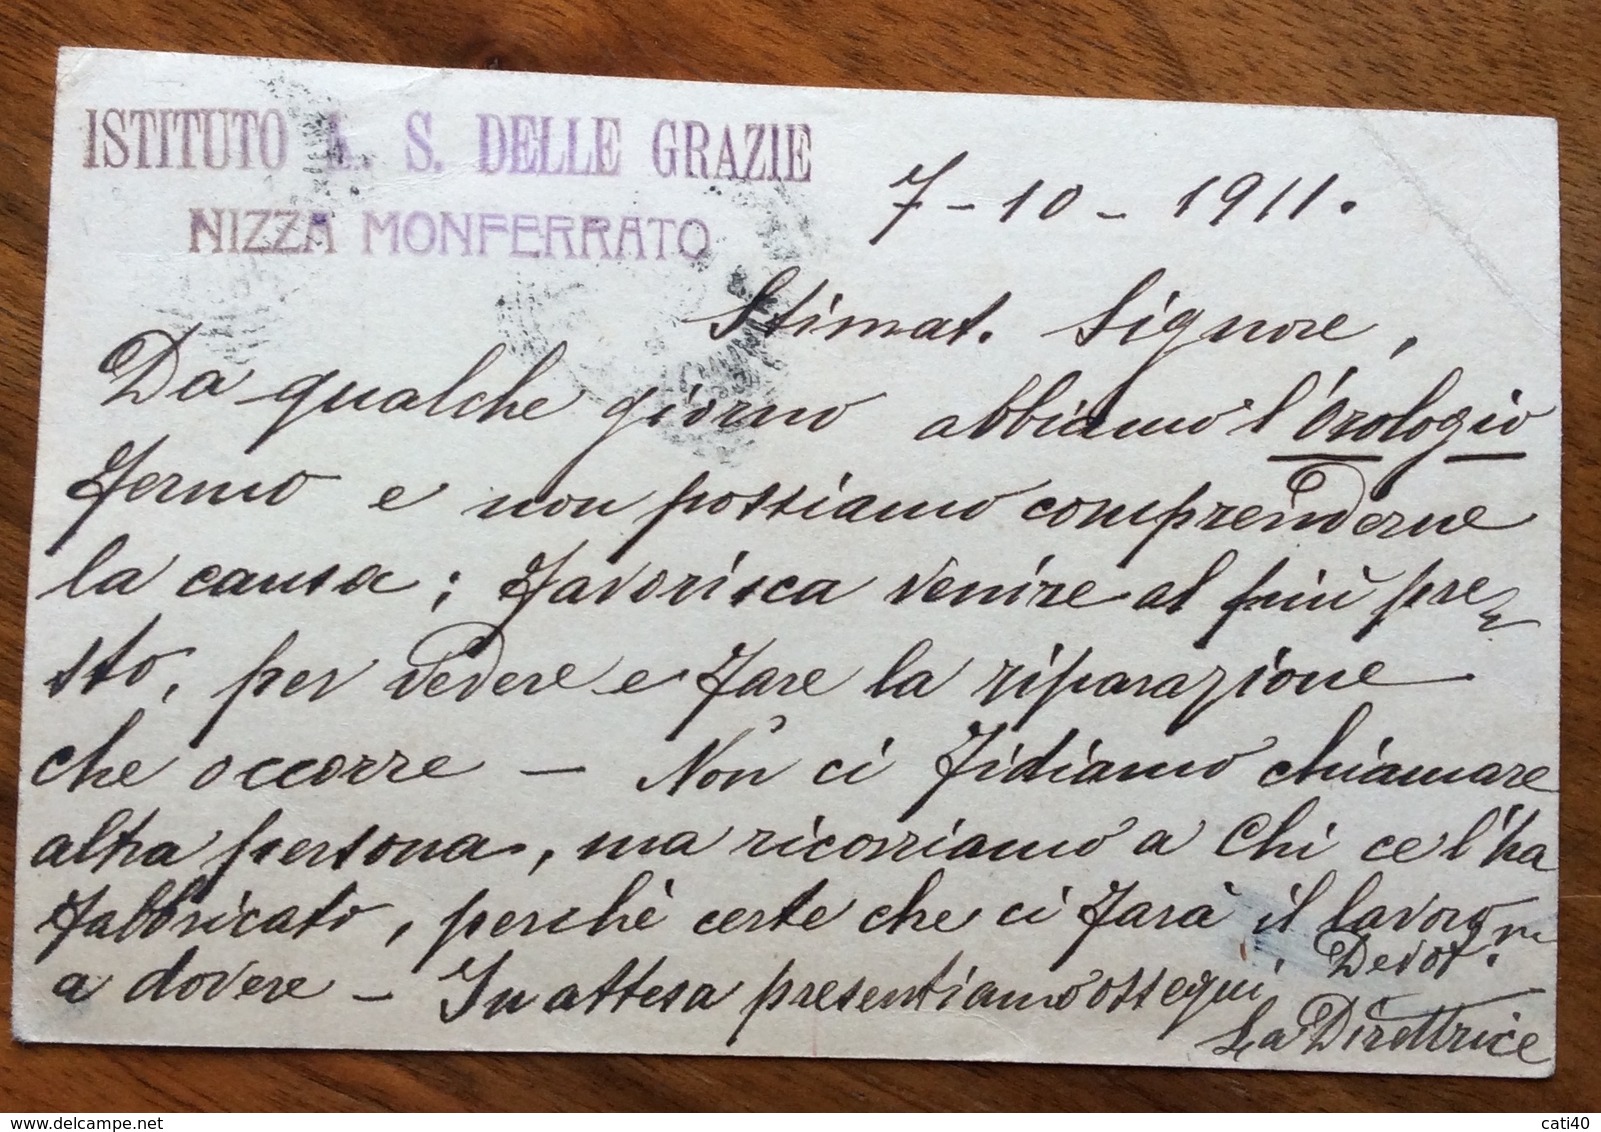 ISTITUTO N. S. DELLE GRAZIE
NIZZA MONFERRATO
7-10-1911.
Stimat. Signore,
Da qualche giorno abbiamo l'orologio
fermo e non possiamo comprenderne
la causa; favorisca venire al più pre-
sto, per vedere e fare la riparazione
che occorre — Non ci fidiamo chiamare
altra persona, ma ricorriamo a chi ce l'ha
fabbricato, perchè certe che ci farà il lavoro
a dovere — In attesa presentiamo ossequi. Devot.
La Direttrice
cati40